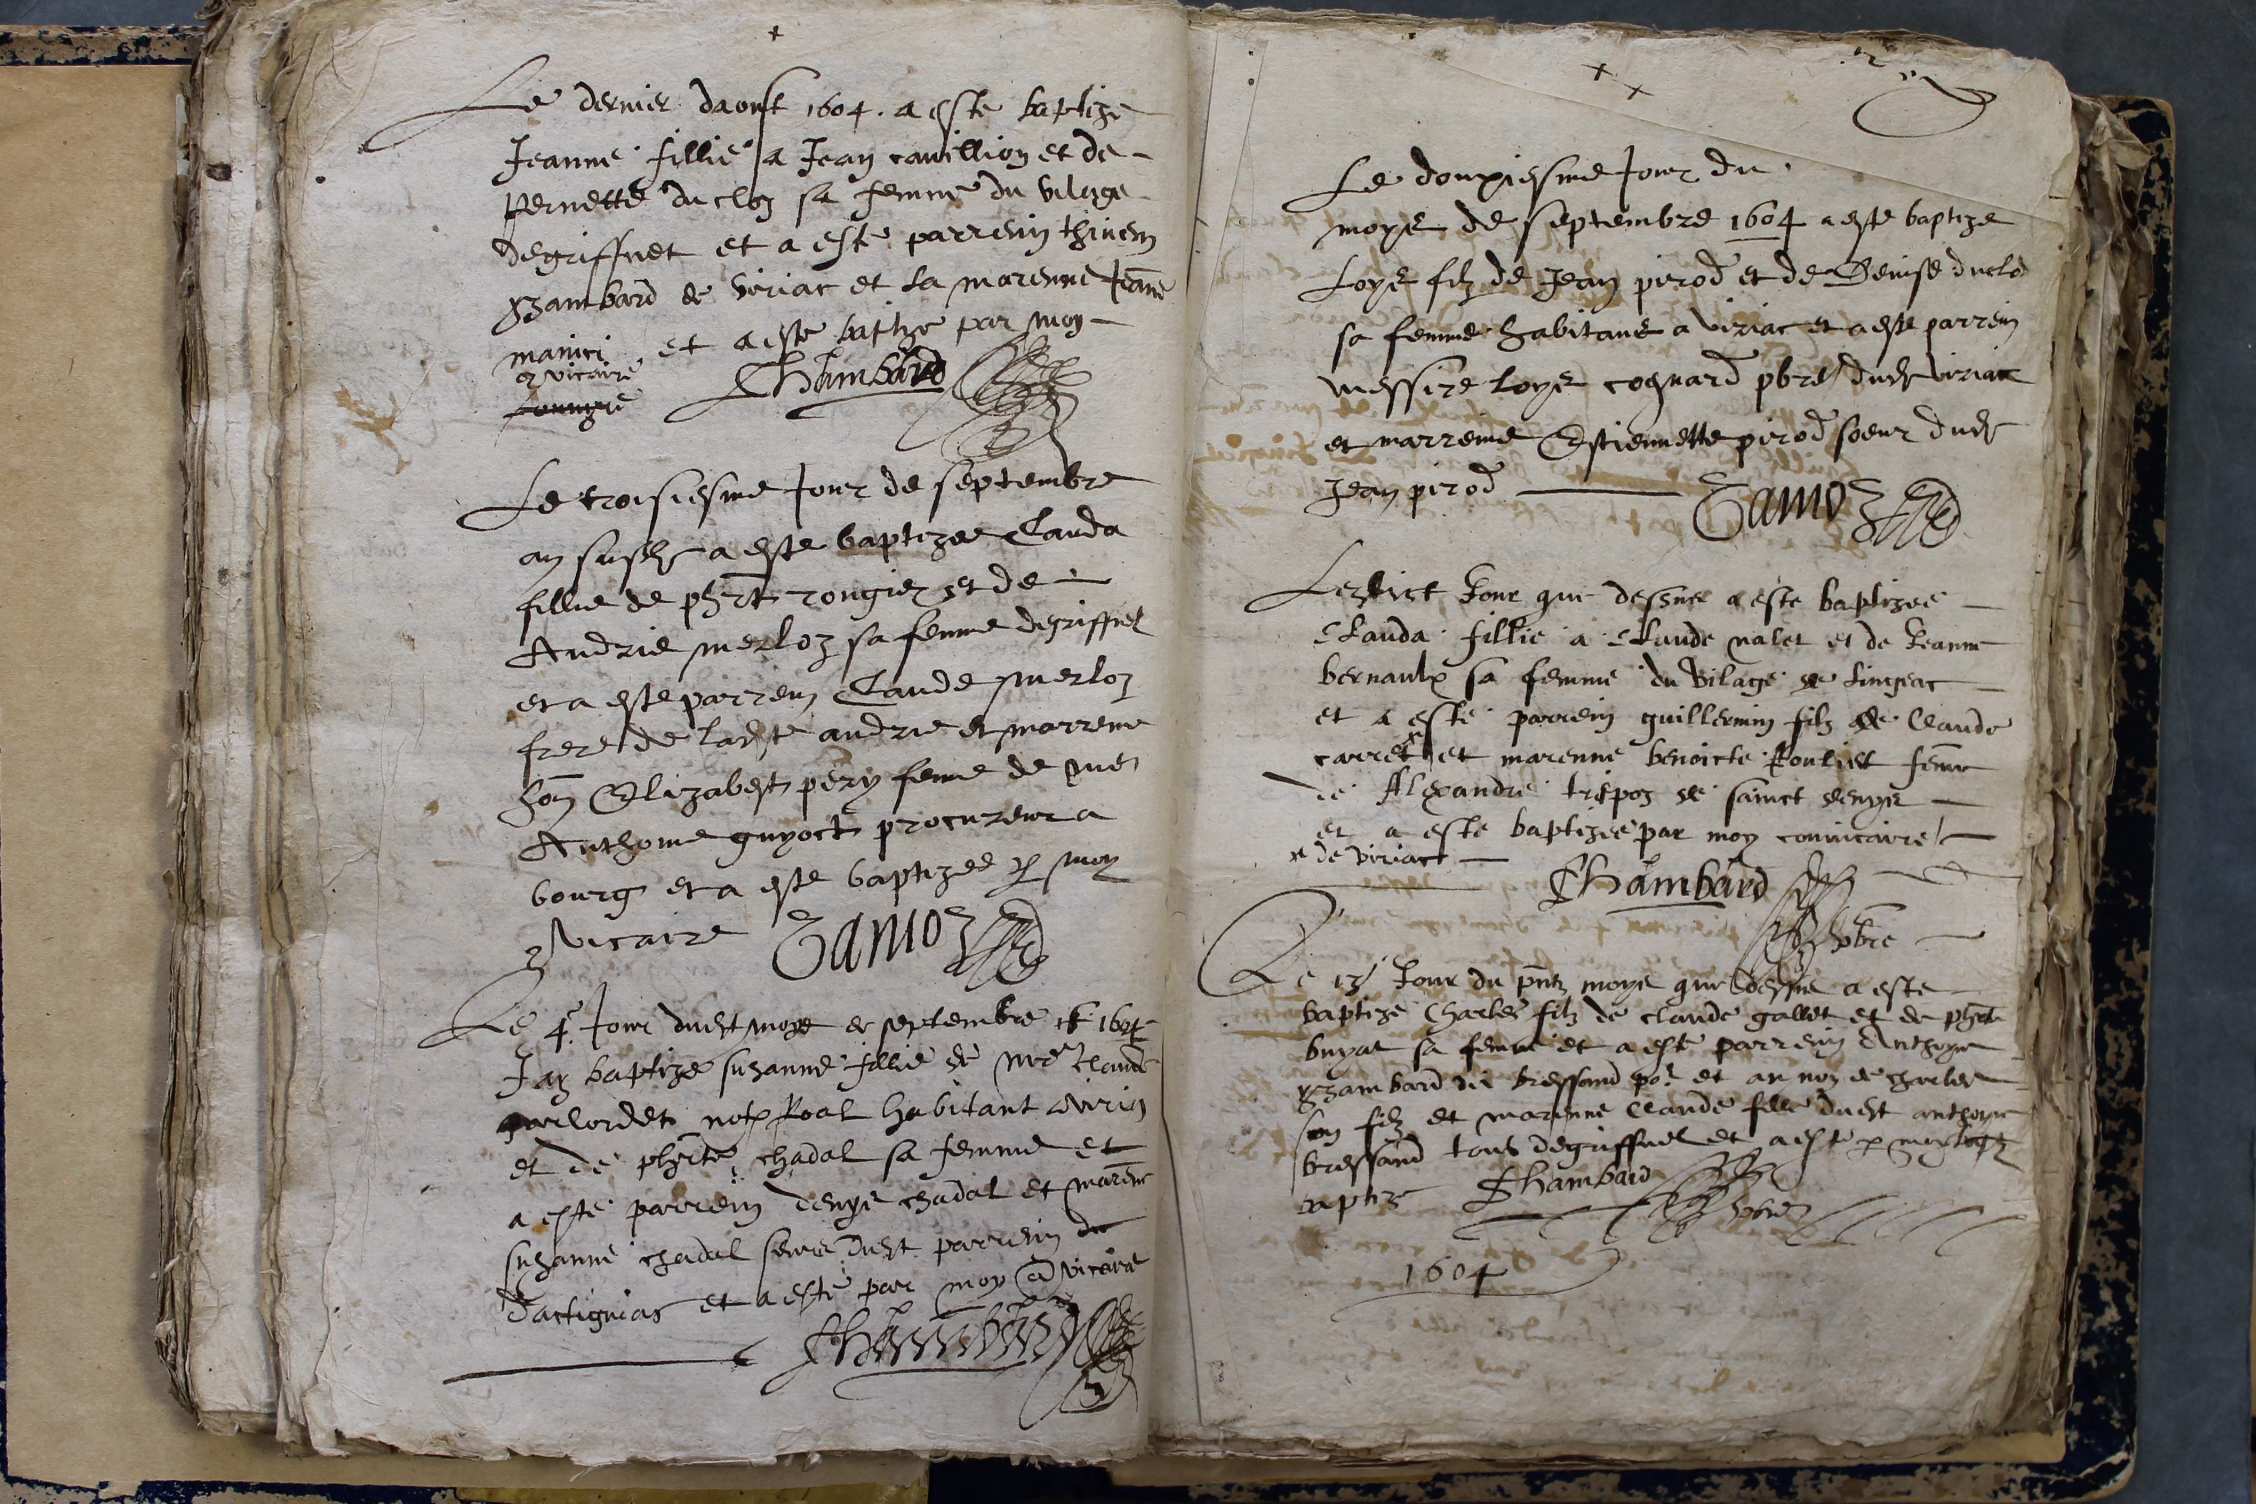 Le dernier daoust 1604. a este baptize
Jeanne fillie a Jean cavillion et de
pernette du cloz sa femme du vilage
degriffnet et a este parrein thivent
Chambard de viriac et la marenne Jeane
et a este baptize par moy
vicaire
Chambard
Le troisiesme Jour de septembre
an susd a este baptizee Clauda
fillie de phrt rougier et de
Andrie merloz sa femme degriffnet
et a este parrein Claude merloz
frere de ladte andrie et marrene
hon Elizabeth pery femme de me
Anthoine guyoct procureur a
bourg et a este baptizee p moy
vicaire Tamoz
Le 4e Jour dudt moys de septembre 1604
Jay baptize suzanne fillie de me claude
notre Roal habitant a
et de phrte chadal sa femme et
a este parrein denys chadal et marene
suzanne chadal seure dudt parrein
dactignias et a este par moy vicaire
Chambard
Le douziesme Jour du
moys de septembre 1604 a este baptize
Loys filz de Jean perod et de Denise duclo
sa femme habitans a viriac et a este parrein
messire loys cognard pbre dud viriac
et marreine Estiennette perod soeur dud
Jean perod Tamoz
Ledict Jour que dessus a este baptizee
Clauda fillie a Claude nalet et de Jeanne
bernaulx sa femme du vilage de Lingeac
et a este parrein guillermin filz de Claude
carret x et marenne benoicte femme
de Alexandre de sainct denys
et a este baptizee par moy convicaire
x de viriact
Chambard
pbre
Le 13 Jour du pnt moys que dessus a este
baptize Charles filz de claude gallet et de phrte
buyat sa femme et a este parrein Anthoyne
Chambard dit bressand po et au nom de charles
son filz et marenne Claude fille dudt anthoyne
bressand tous degriffnet et a este p moy
baptize Chambard pbre
1604